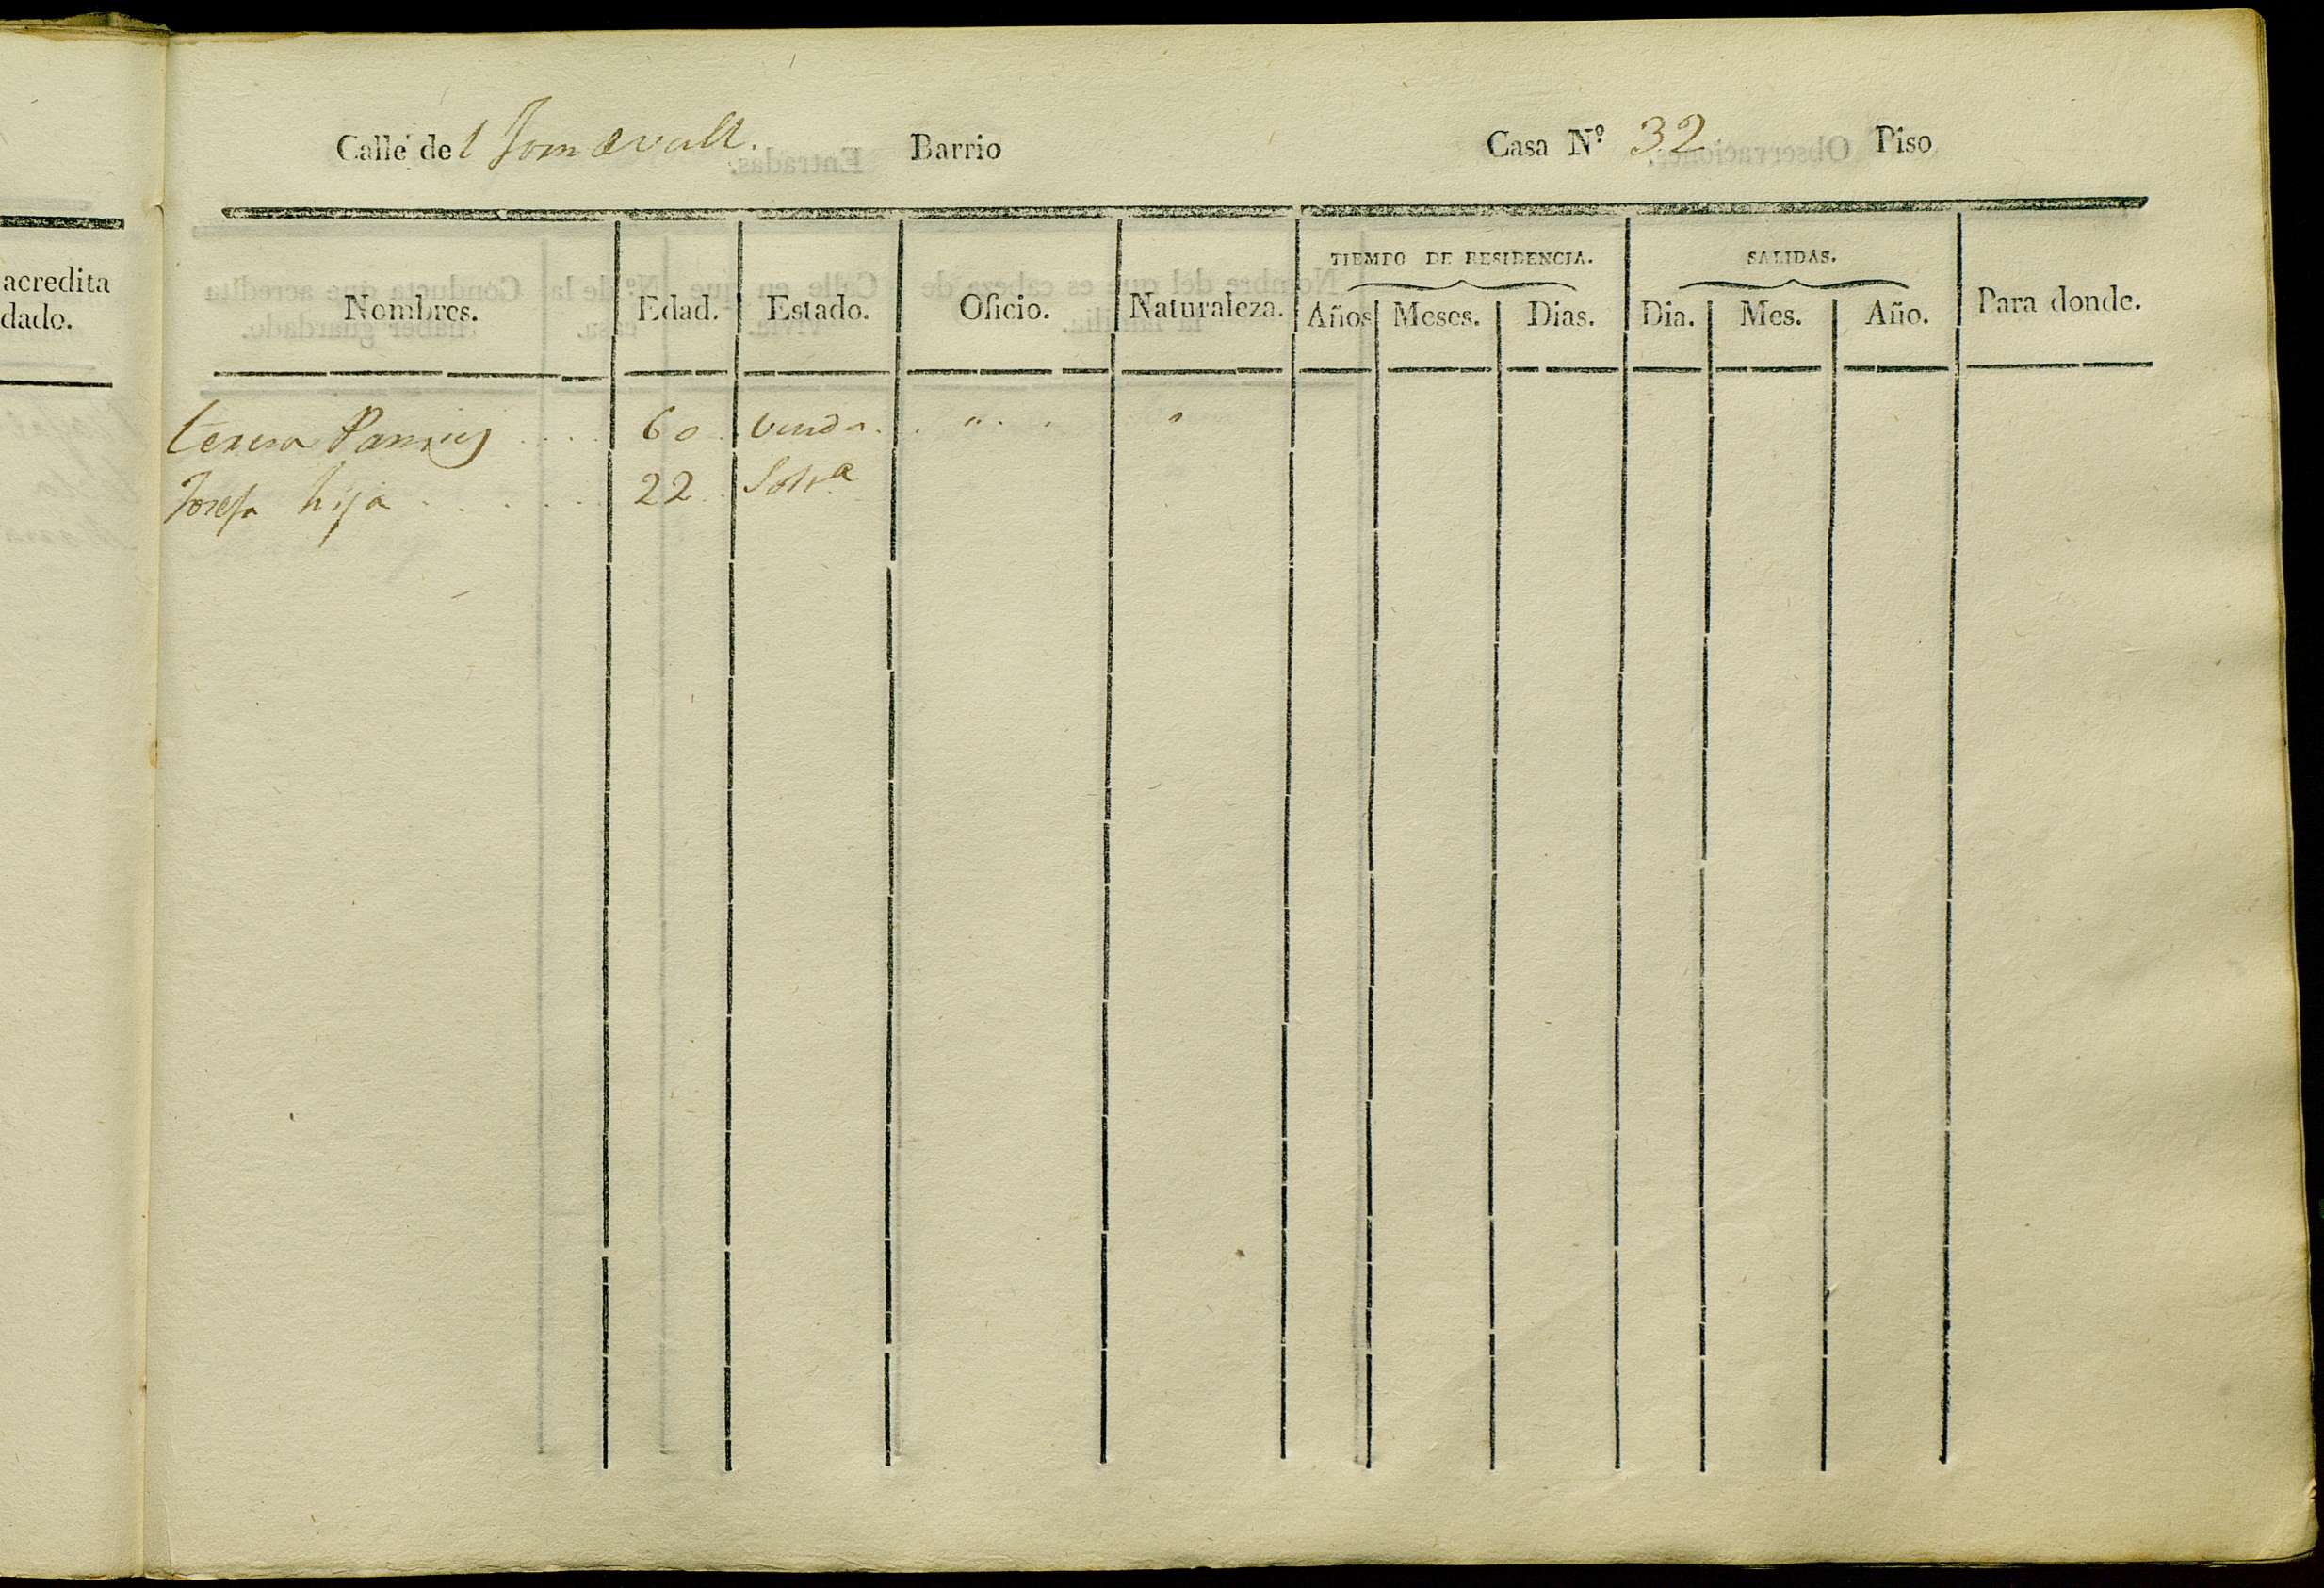 acredita
dado.
Calle del Barrio Casa Nº 32 Piso
TIEMPO DE RESIDENCIA. SALIDAS.
Nombres. Edad. Estado. Oficio. Naturaleza. Años Meses. Dias. Dia. Mes. Año. Para donde.
Teresa 60 viuda " "
Josefa hija 22 Solta